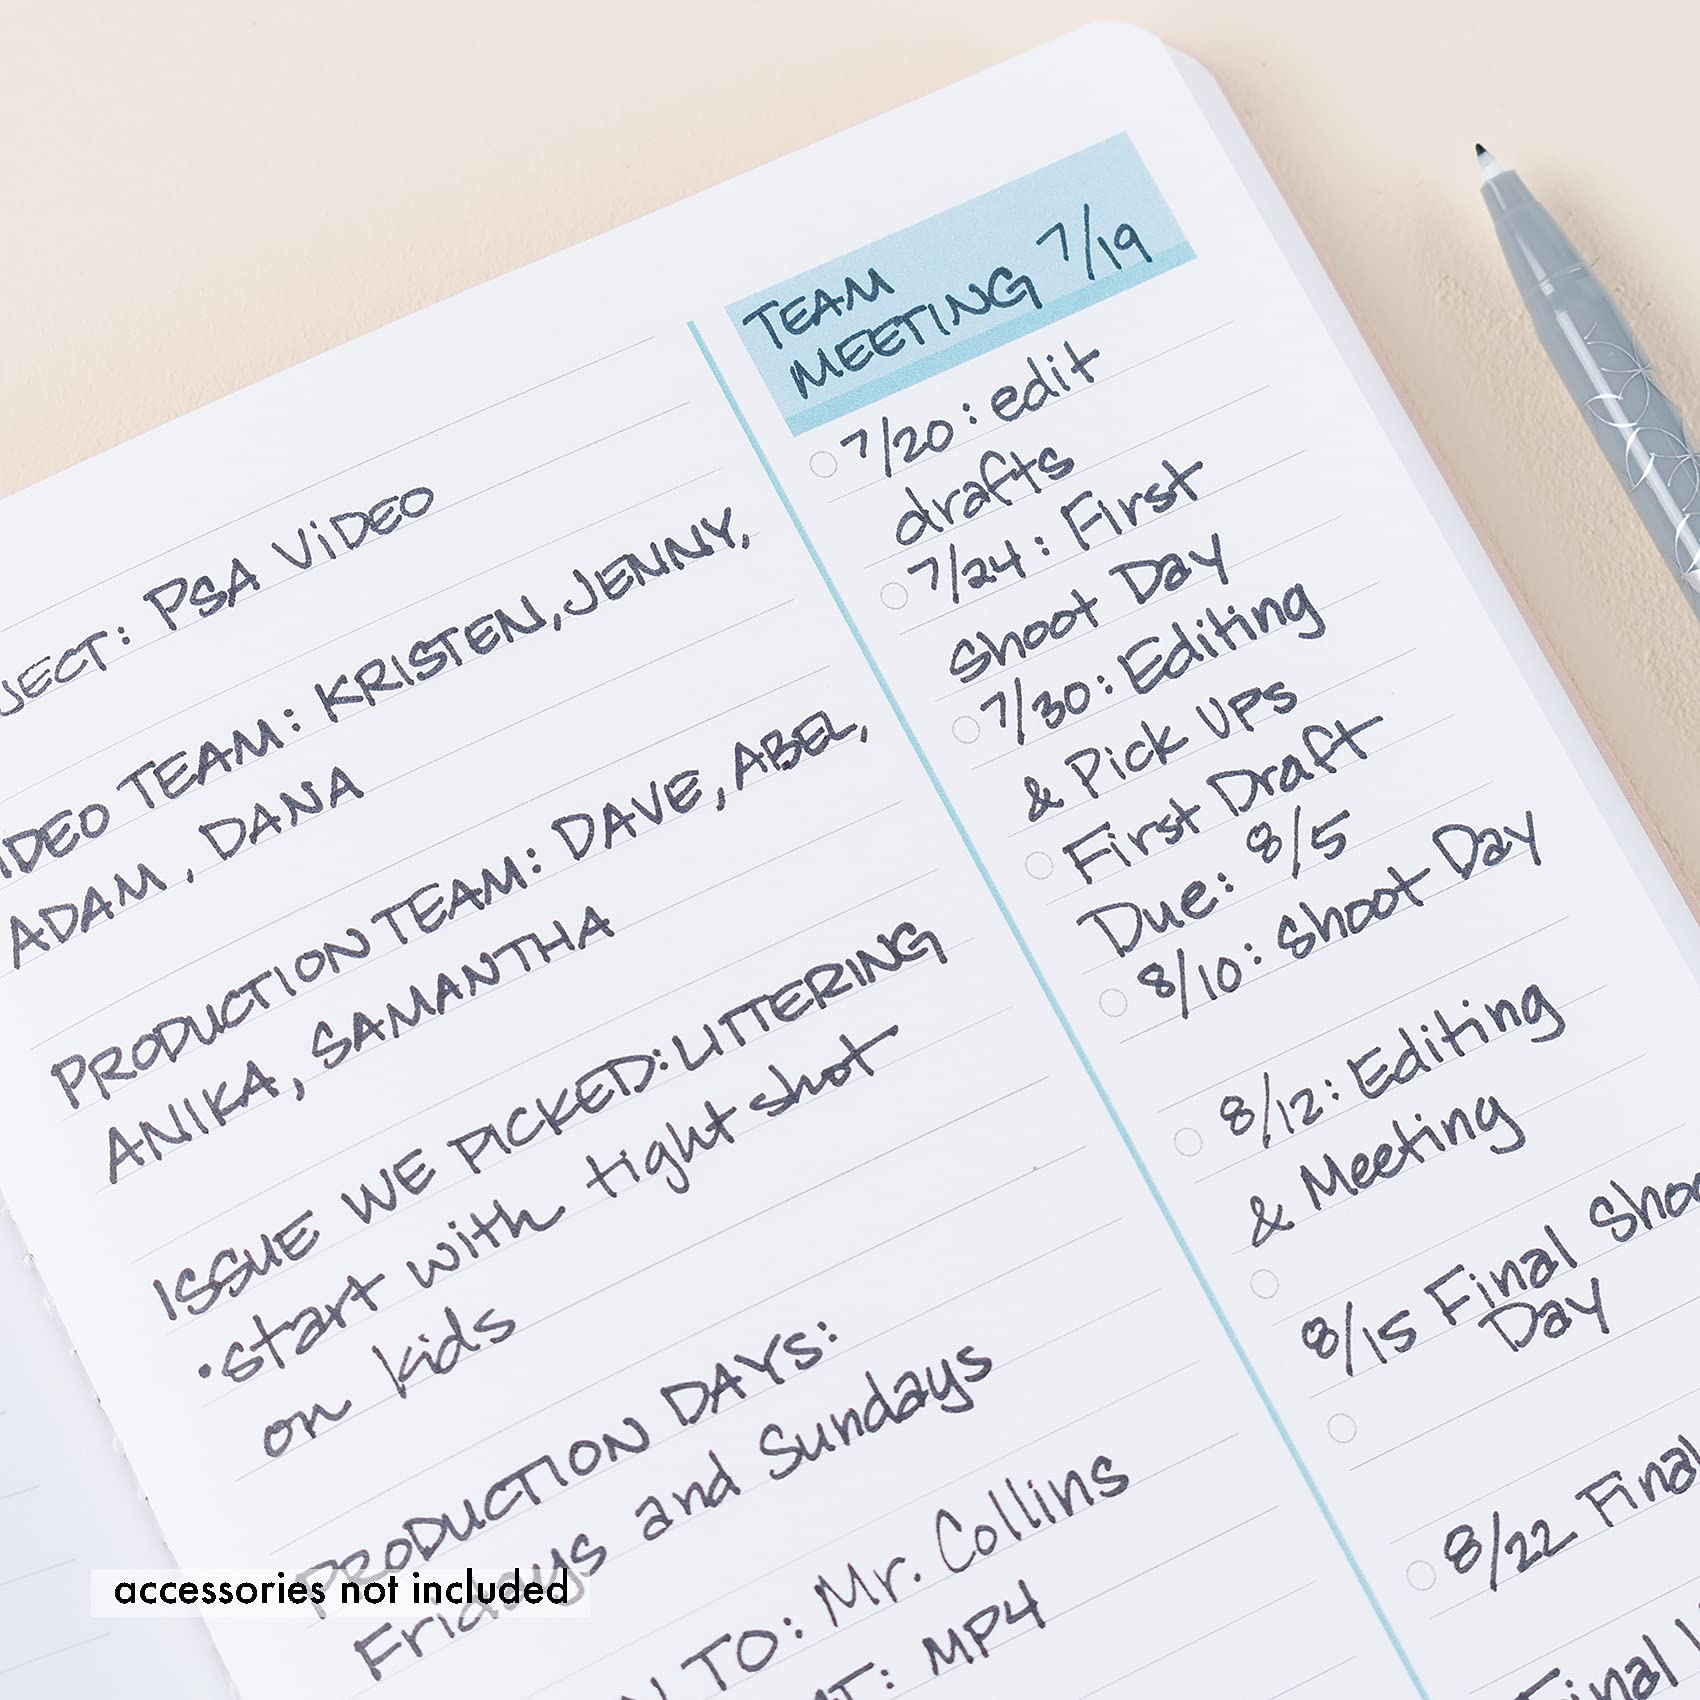 PSA VIDEO
TEAM: KRISTEN, JENNY,
ADAM, DANA
PRODUCTION TEAM: DAVE, ABEL,
ANIKA, SAMANTHA
ISSUE WE PICKED: LITTERING
• start with tight shot
on kids
PRODUCTION DAYS:
Fridays and Sundays
TO: Mr. Collins
MP4
TEAM
MEETING 7/19
7/20: edit
drafts
7/24: First
Shoot Day
7/30: Editing
& Pick UPS
First Draft
Due: 8/5
8/10: Shoot Day
8/12: Editing
& Meeting
8/15 Final
Day
8/22
accessories not included